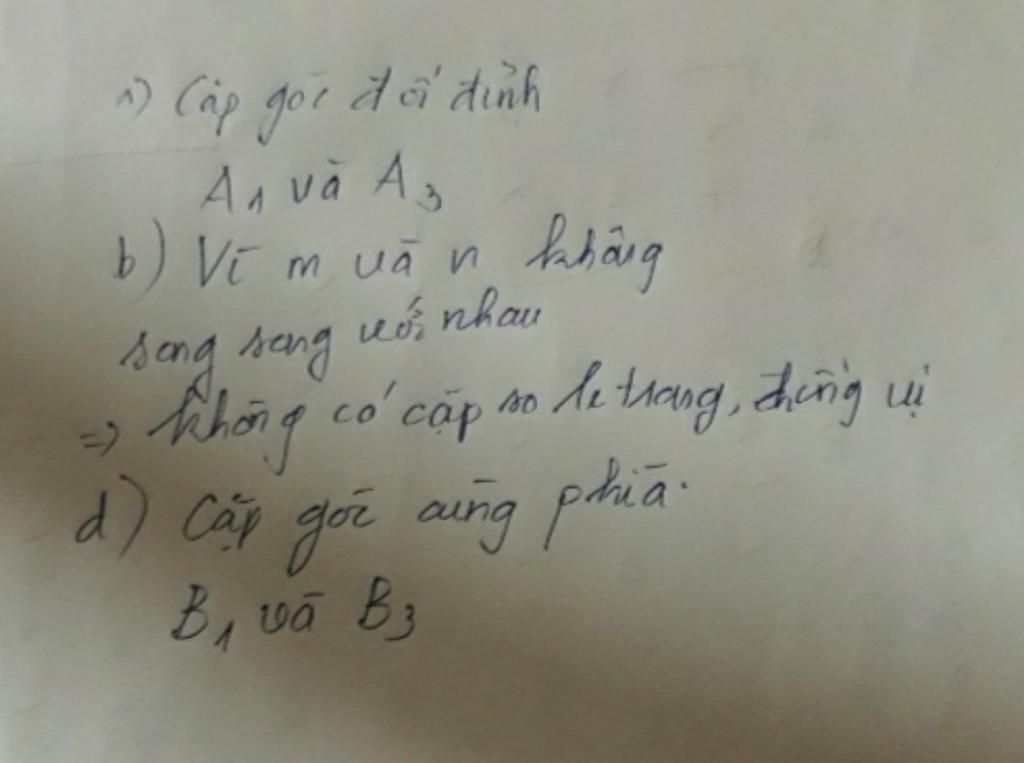 a) Cặp góc đối đỉnh
A1 và A3
b) Vì m và n không
song song với nhau
=> không có cặp so le trong, đồng vị
d) Cặp góc cùng phía.
B1 và B3